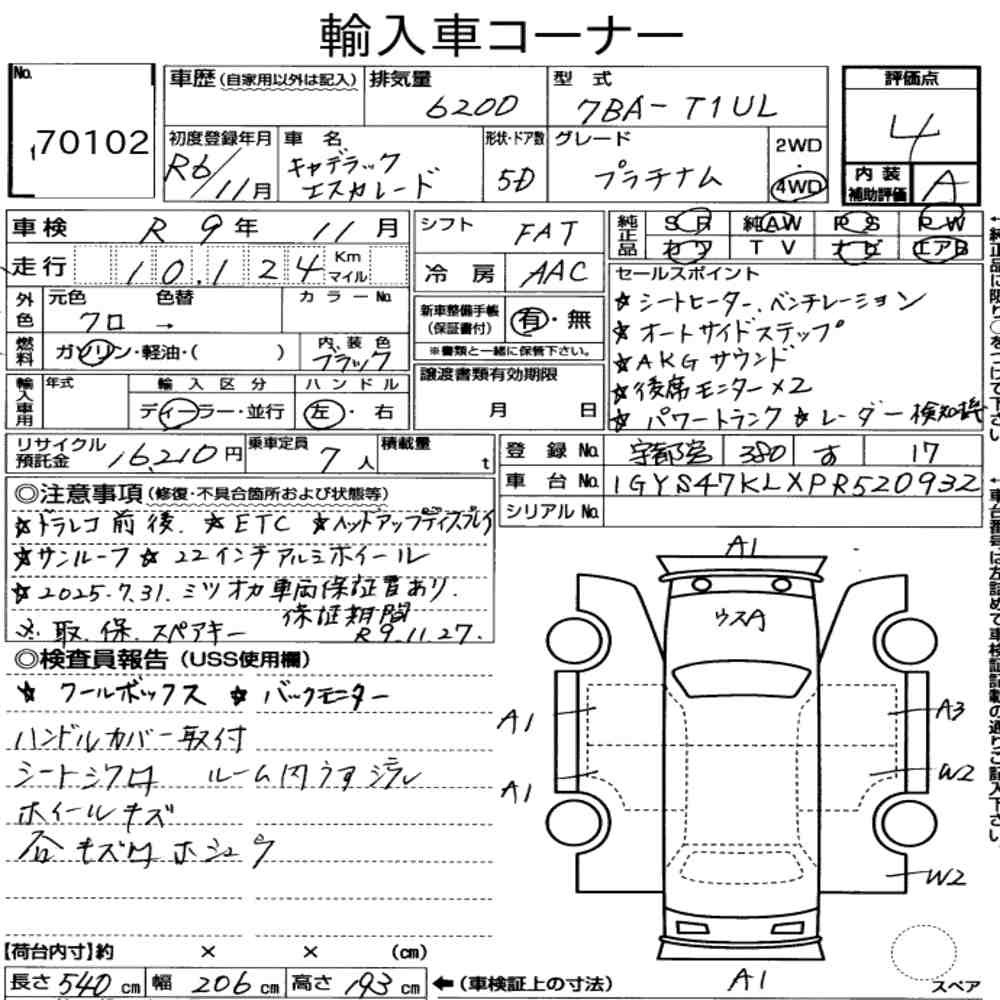 輸入車コーナー
No. 70102
車歴 (自家用以外は記入)
排気量 6200
型式 7BA-T1UL
評価点 4
初度登録年月 R6/11月
車名 キャデラック エスカレード
形状・ドア数 5D
グレード プラチナム
2WD 4WD
内装補助評価 A
車検 R 9年 11月
シフト FAT
純正品 SR 純AW PS PW
カワ TV ナビ エアB
走行 10,124 Km マイル
冷房 AAC
セールスポイント
☆シートヒーター、ベンチレーション
☆オートサイドステップ
☆AKGサウンド
☆後席モニター×2
☆パワートランク ☆レーダー検知機
外色 元色 クロ → 色替 カラーNo.
新車整備手帳 (保証書付) 有・無
※書類と一緒に保管下さい。
燃料 ガソリン・軽油・( )
内装色 ブラック
譲渡書類有効期限 月 日
輸入車用 年式 輸入区分 ディーラー・並行
ハンドル 左・右
リサイクル預託金 16,210円
乗車定員 7人
積載量 t
登録No. 宇都宮 380 す 17
車台No. 1GYS47KLXPR520932
シリアルNo.
◎注意事項 (修復・不具合箇所および状態等)
☆ドラレコ前後、☆ETC ☆ヘッドアップディスプレイ
☆サンルーフ ☆22インチアルミホイール
☆2025.7.31.ミツオカ車両保証書あり.
保証期間 R9.11.27.
※取.保.スペアキー
◎検査員報告 (USS使用欄)
☆クールボックス ☆バックモニター
ハンドルカバー取付
シートシワ凹 ルーム内うすジラレ
ホイールキズ
谷キズ凹ホシュウ
【荷台内寸】約 × × (cm)
長さ 540cm 幅 206cm 高さ 193cm
←(車検証上の寸法)
A1
ウスA
A1
A3
A1
W2
W2
A1
スペア
←純正品に限り○をつけて下さい。
←車台番号は左詰めで車検証記載の通りご記入下さい。